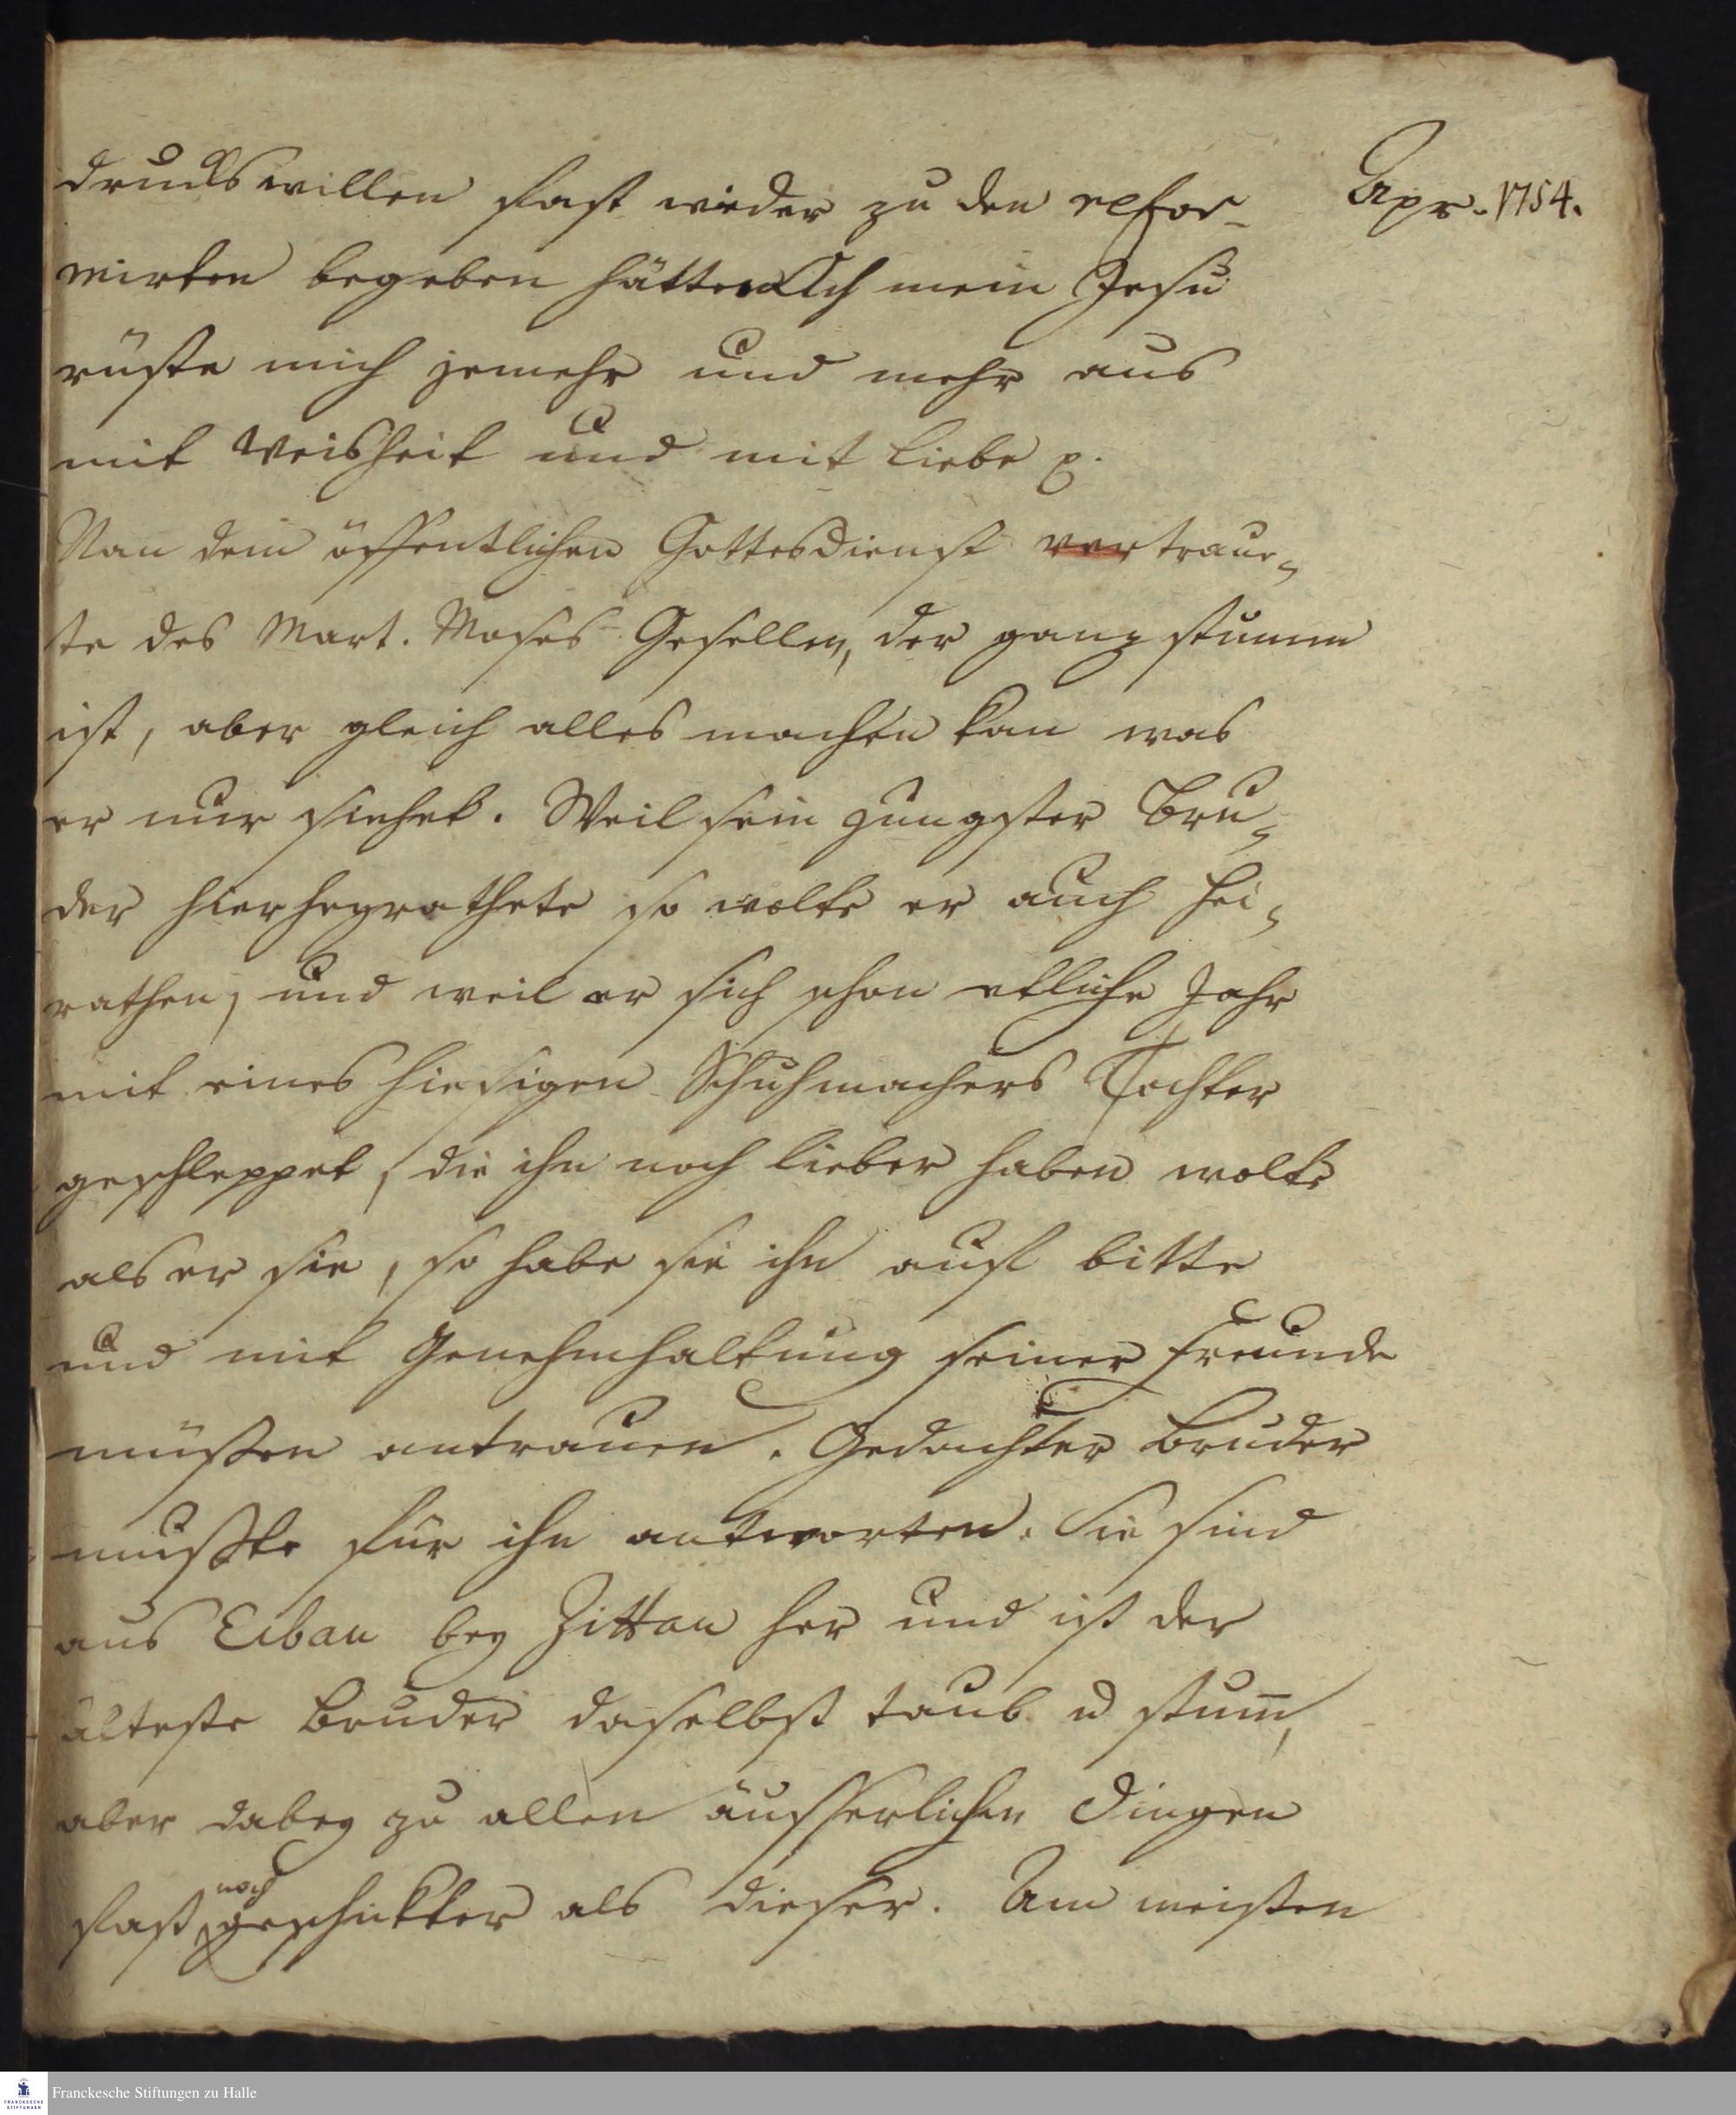 Apr. 1754.
drucks willen fast wieder zu den refor-
mirten begeben hätten Ach mein Jesu
rüste mich jemehr und mehr aus
mit Weisheit und mit Liebe p.
Nan dem öffentlichen Gottesdienst vertraue-
te des Mart. Moses Gesellen, der ganz stumm
ist, aber gleich alles machen kan was
er nur siehet. Weil sein jüngster Bru-
der hier heyrathete so wolte er auch hei-
rathen, und weil er sich schon etliche Jahr
mit eines hiesigen Schuhmachers Tochter
geschleppet, die ihn noch lieber haben wolte
als er sie, so habe sie ihn auf bitte
und mit Genehmhaltung seiner Freunde
müßen antrauen. Gedachter Bruder
mußte für ihn antworten. Sie sind
aus Eibau bey Zittau her und ist der
älteste Bruder daselbst taub u stum̄,
aber dabey zu allen äusserlichen Dingen
fast noch geschikter als dieser. Am meisten
Franckesche Stiftungen zu Halle